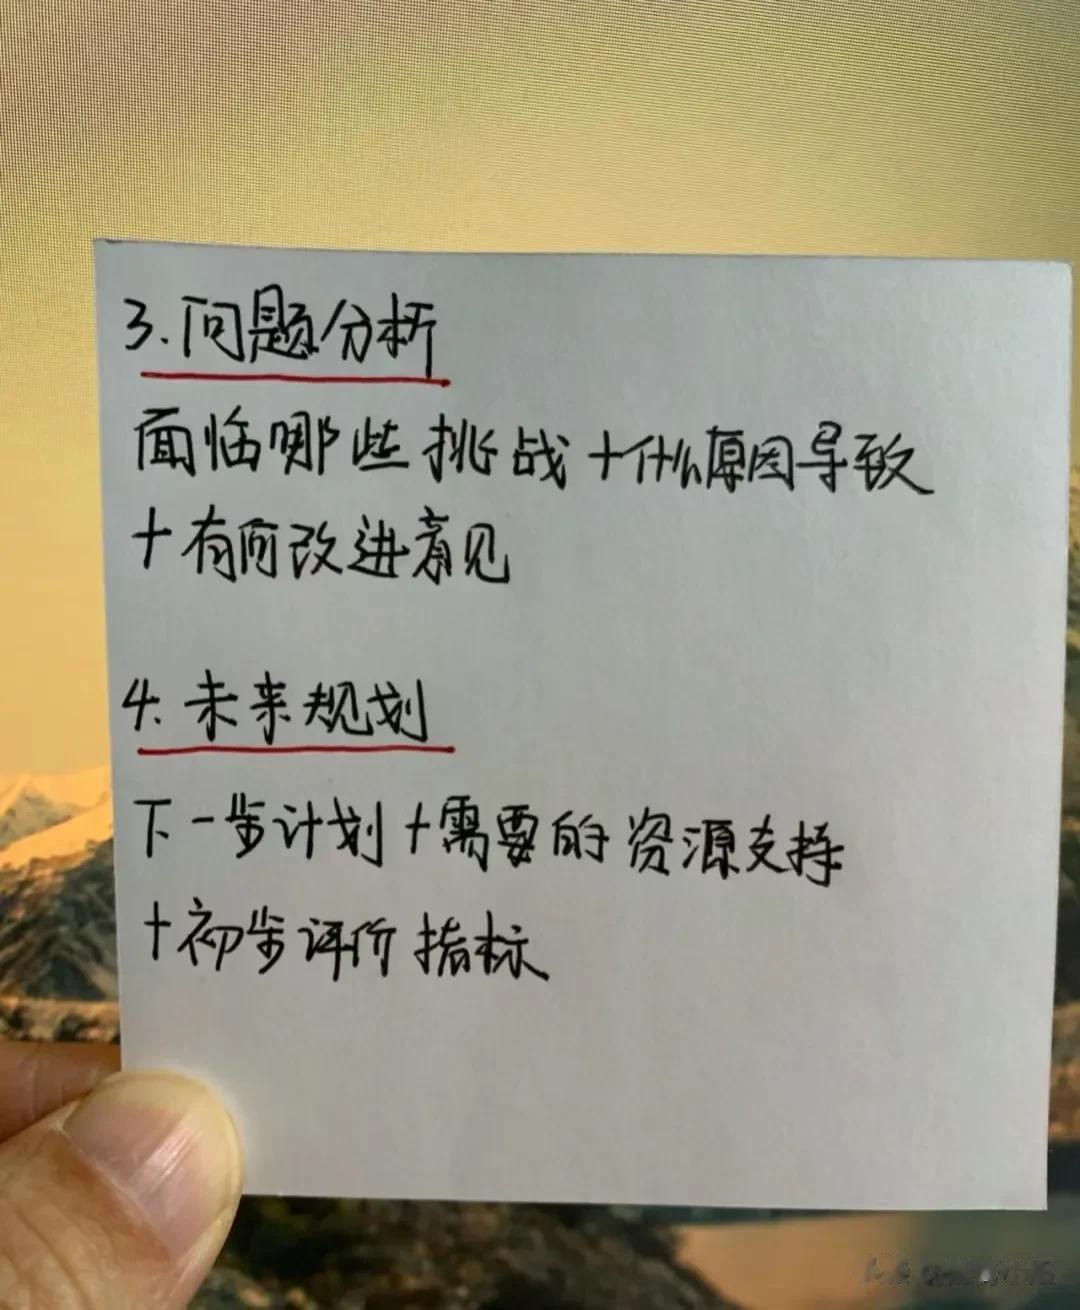 3.问题分析
面临哪些挑战+什么原因导致
+有何改进意见
4.未来规划
下一步计划+需要的资源支持
+初步评价指标